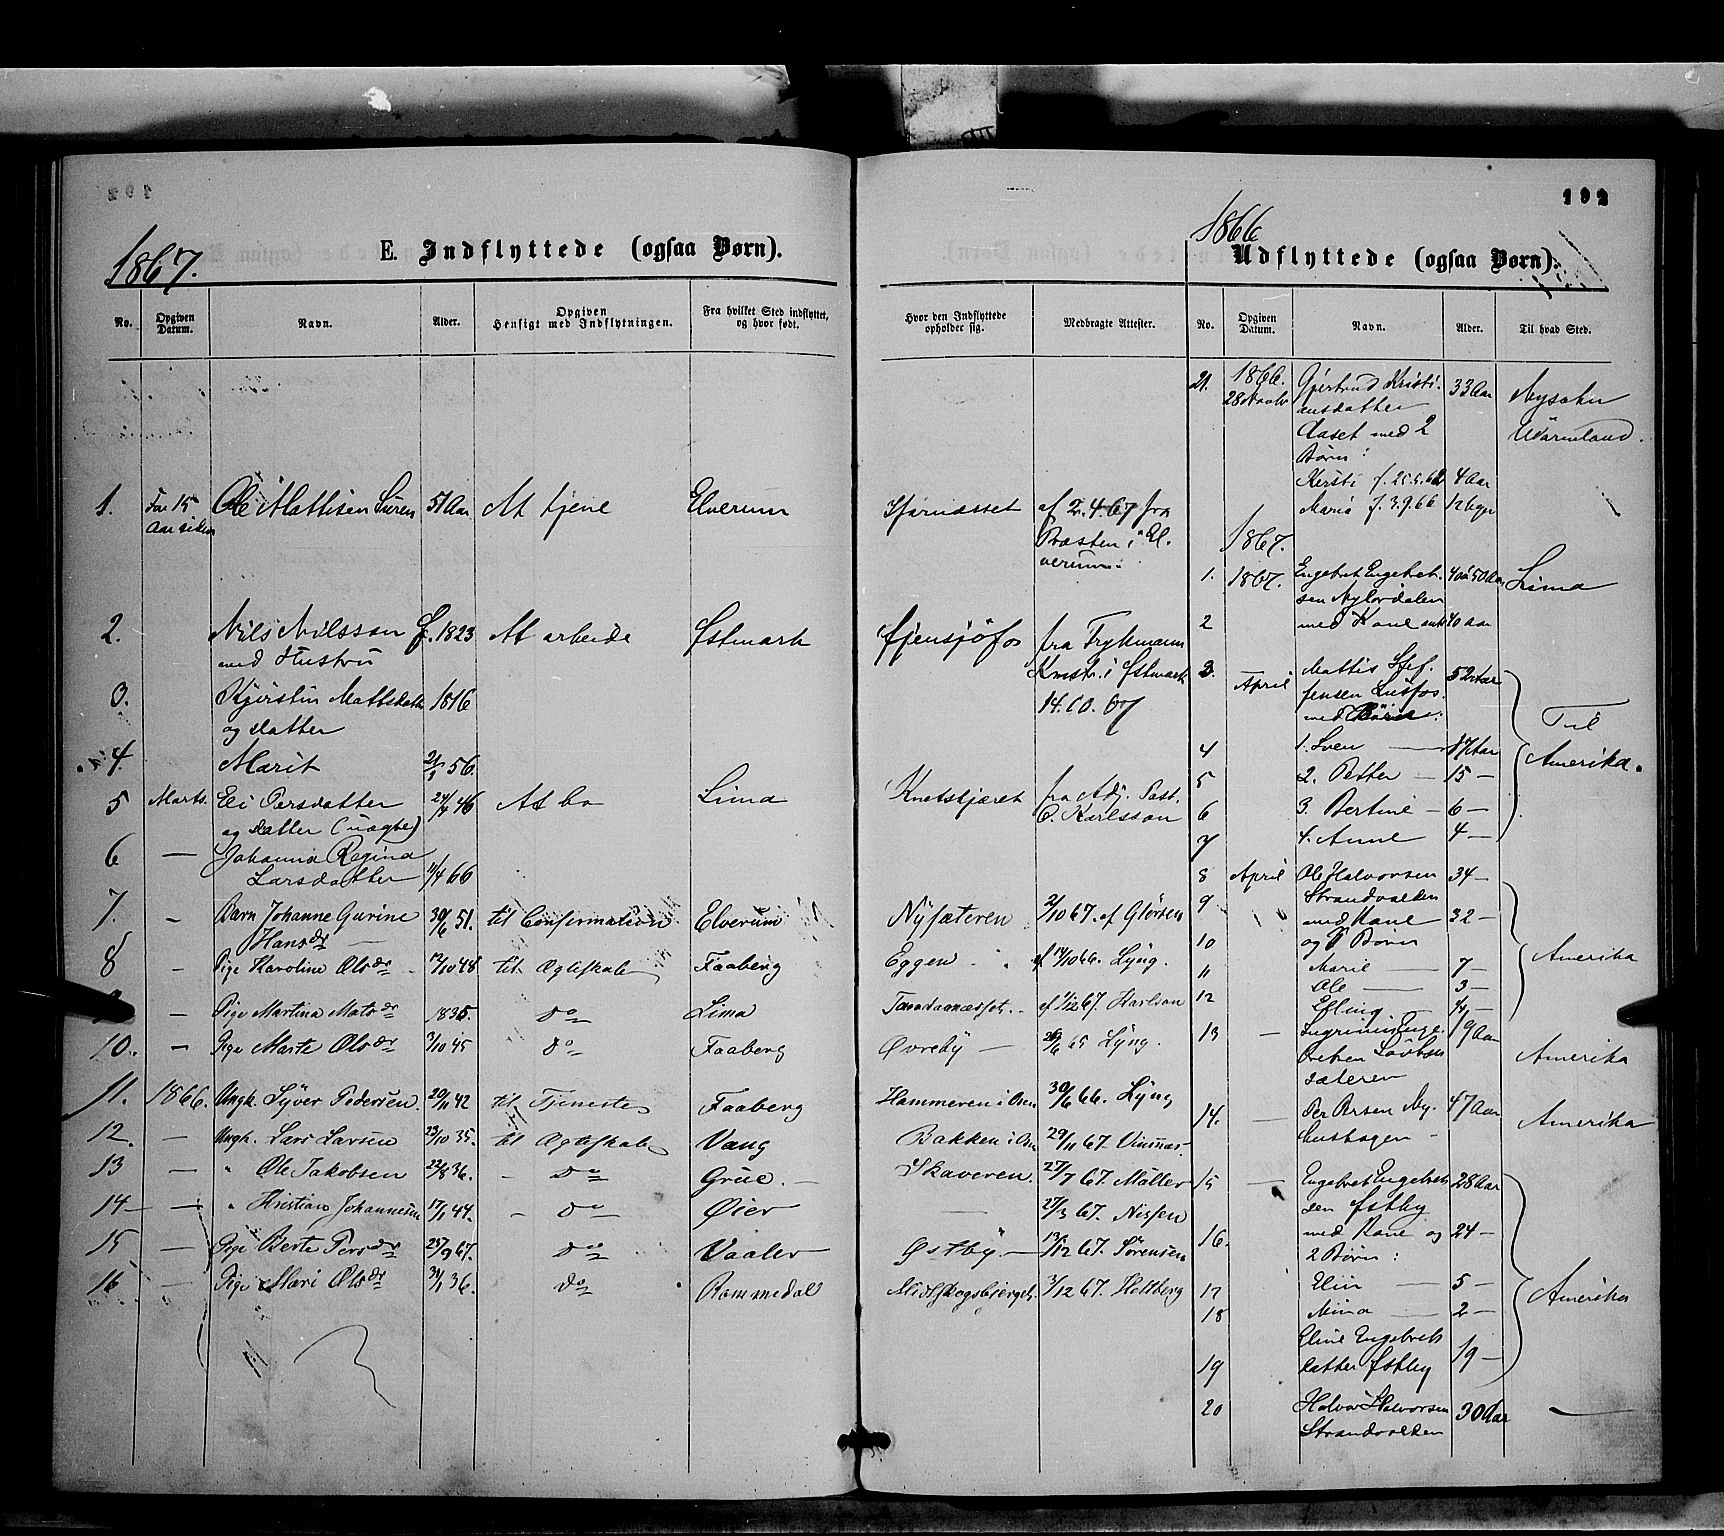 192
1867.
E. Indflyttede (ogsaa Børn).
No.
Opgiven Datum.
Navn.
Alder.
Opgiven Hensigt med Indflytningen.
Fra hvilket Sted indflyttet, og hvor født.
Hvor den Indflyttede opholder sig.
Medbragte Attester.
1. For 15 Aar siden Ole Mattisen 51 Aar At tjene Elverum af 2.4.67 fra
Præsten i El-
verum.
2. Nils Nilsson f. 1823 At arbeide Østmark fra
med Hustru i Østmark
3. Kjerstin Mattsdatter 1816 14.10.67
og datter
4. Marit 56.
5 Marts. Eli Persdatter 46 At bo Lima fra Adj. Past.
og datter (uægte) C. Karlsson
6 — Johanna Regina
Larsdatter 11/4 66
7. - Barn Johanne Gurine 30/6 51. til Confirmation Elverum Nysæteren 2/10 67. af
Hansdr —
8 - Pige Karoline Olsdr 12/10 48 til Ægteskab Faaberg Eggen af 14/10 66. Lyng.
- Pige Martina Matsdr 1835 Do Lima af 1/12 67. Karlson
10. - Pige Marte Olsdr 3/10 45 Do Faaberg Øvreby — 65 Lyng.
11. 1866. Ungk. Syver Pedersen 20/11 42 til Tjeneste Faaberg Hammeren i Osen 30/6 66. Lyng
12. — Ungk. Lars Larsen 23/10 35. til Ægteskab Vang Bakken i Osen 29/11 67.
13 — " Ole Jakobsen 22/8 36. - Do Grue. — Skaveren. 27/7 67. Møller
14 — — " Kristian Johannesen 17/1 44. - Do Øier — 27/3 67. Nissen
15 — Pige Berte Persdr 25/9 67. Do Vaaler Østby. — 13/12 67. Sørensen
16 — Pige Mari Olsdr 31/1 36. Do Rommedal 3/12 67. Heltberg
1866
Udflyttede (ogsaa Børn).
No.
Opgiven Datum.
Navn.
Alder.
Til hvad Sted.
21. 1866. Gjertrud Kristi- 33 Aar
28 Novbr ansdatter Wärmland.
Aaset med 2
Børn:
Kersti f. 25.5.62 4 Aar
Maria f. 3.9.66 12 Uger
1867.
1. 1867. Engebret Engebret- 50 Aar Lima
sen
2 med Kone 40 Aar
3. April Mattis Stef- 52 Aar
fensen Lusfos
med Børn:
Til
4 1. Sven — 17 Aar Amerika.
5 2. Petter — 15 —
6 3. Bertine — 6 —
7 4. Anne 4 —
8 April Ole Halvorsen 34 —
Strandvolden
9 med Kone 32 —
10 og Børn Amerika
11 Marie — 7 —
12 Ole — 3 —
—
13 — 19 Aar
Amerika
sæteren
14. — Per Persen Ny- 47 Aar Amerika
15 — Engebret Engebret- 28 Aar
sen Østby
16. med Kone og 24 —
2 Børn:
17 Elin — 5 — Amerika
18 Mina — 2 —
Eline Engebrets-
19 datter Østby 19 —
20 Halvor Halvorsen 30 Aar —
Strandvolden